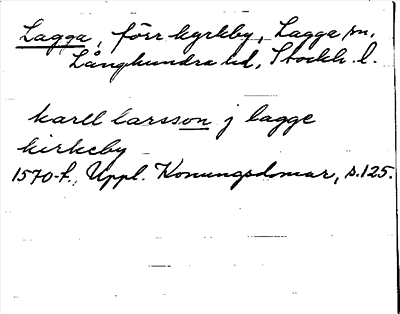 Lagga, förr kyrkby, Lagga sn,
Långhundra hd, Stockh. l.
karell larsson j lagge
kirkeby
1570-t., Uppl. Konungsdomar, s.125.